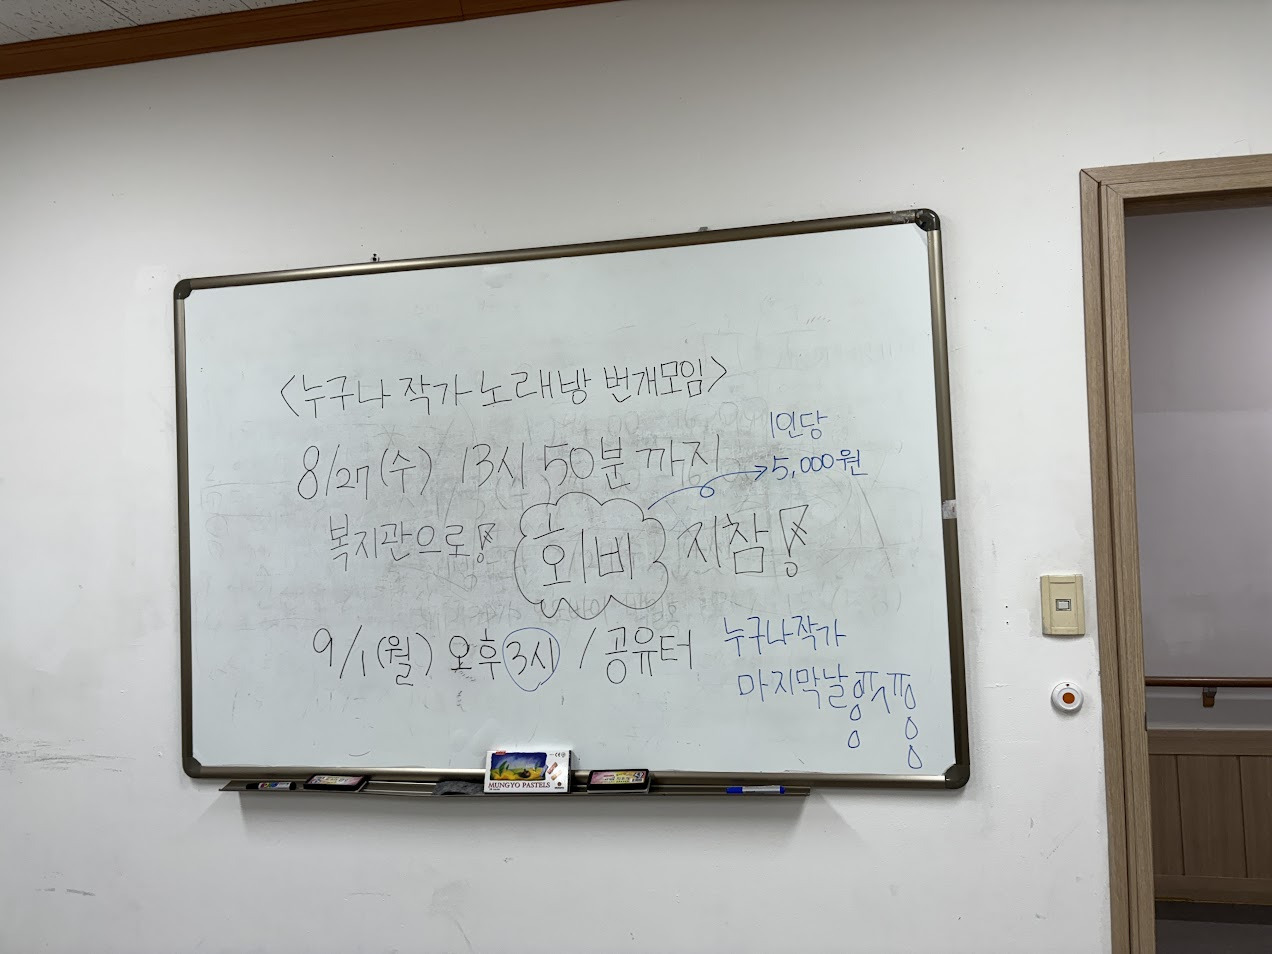 <누구나 작가 노래방 번개모임>
8/27(수) 13시 50분 까지
1인당
5,000원
복지관으로! 회비 지참!
9/1(월) 오후 3시 / 공유터
누구나작가
마지막날
MUNGYO PASTELS